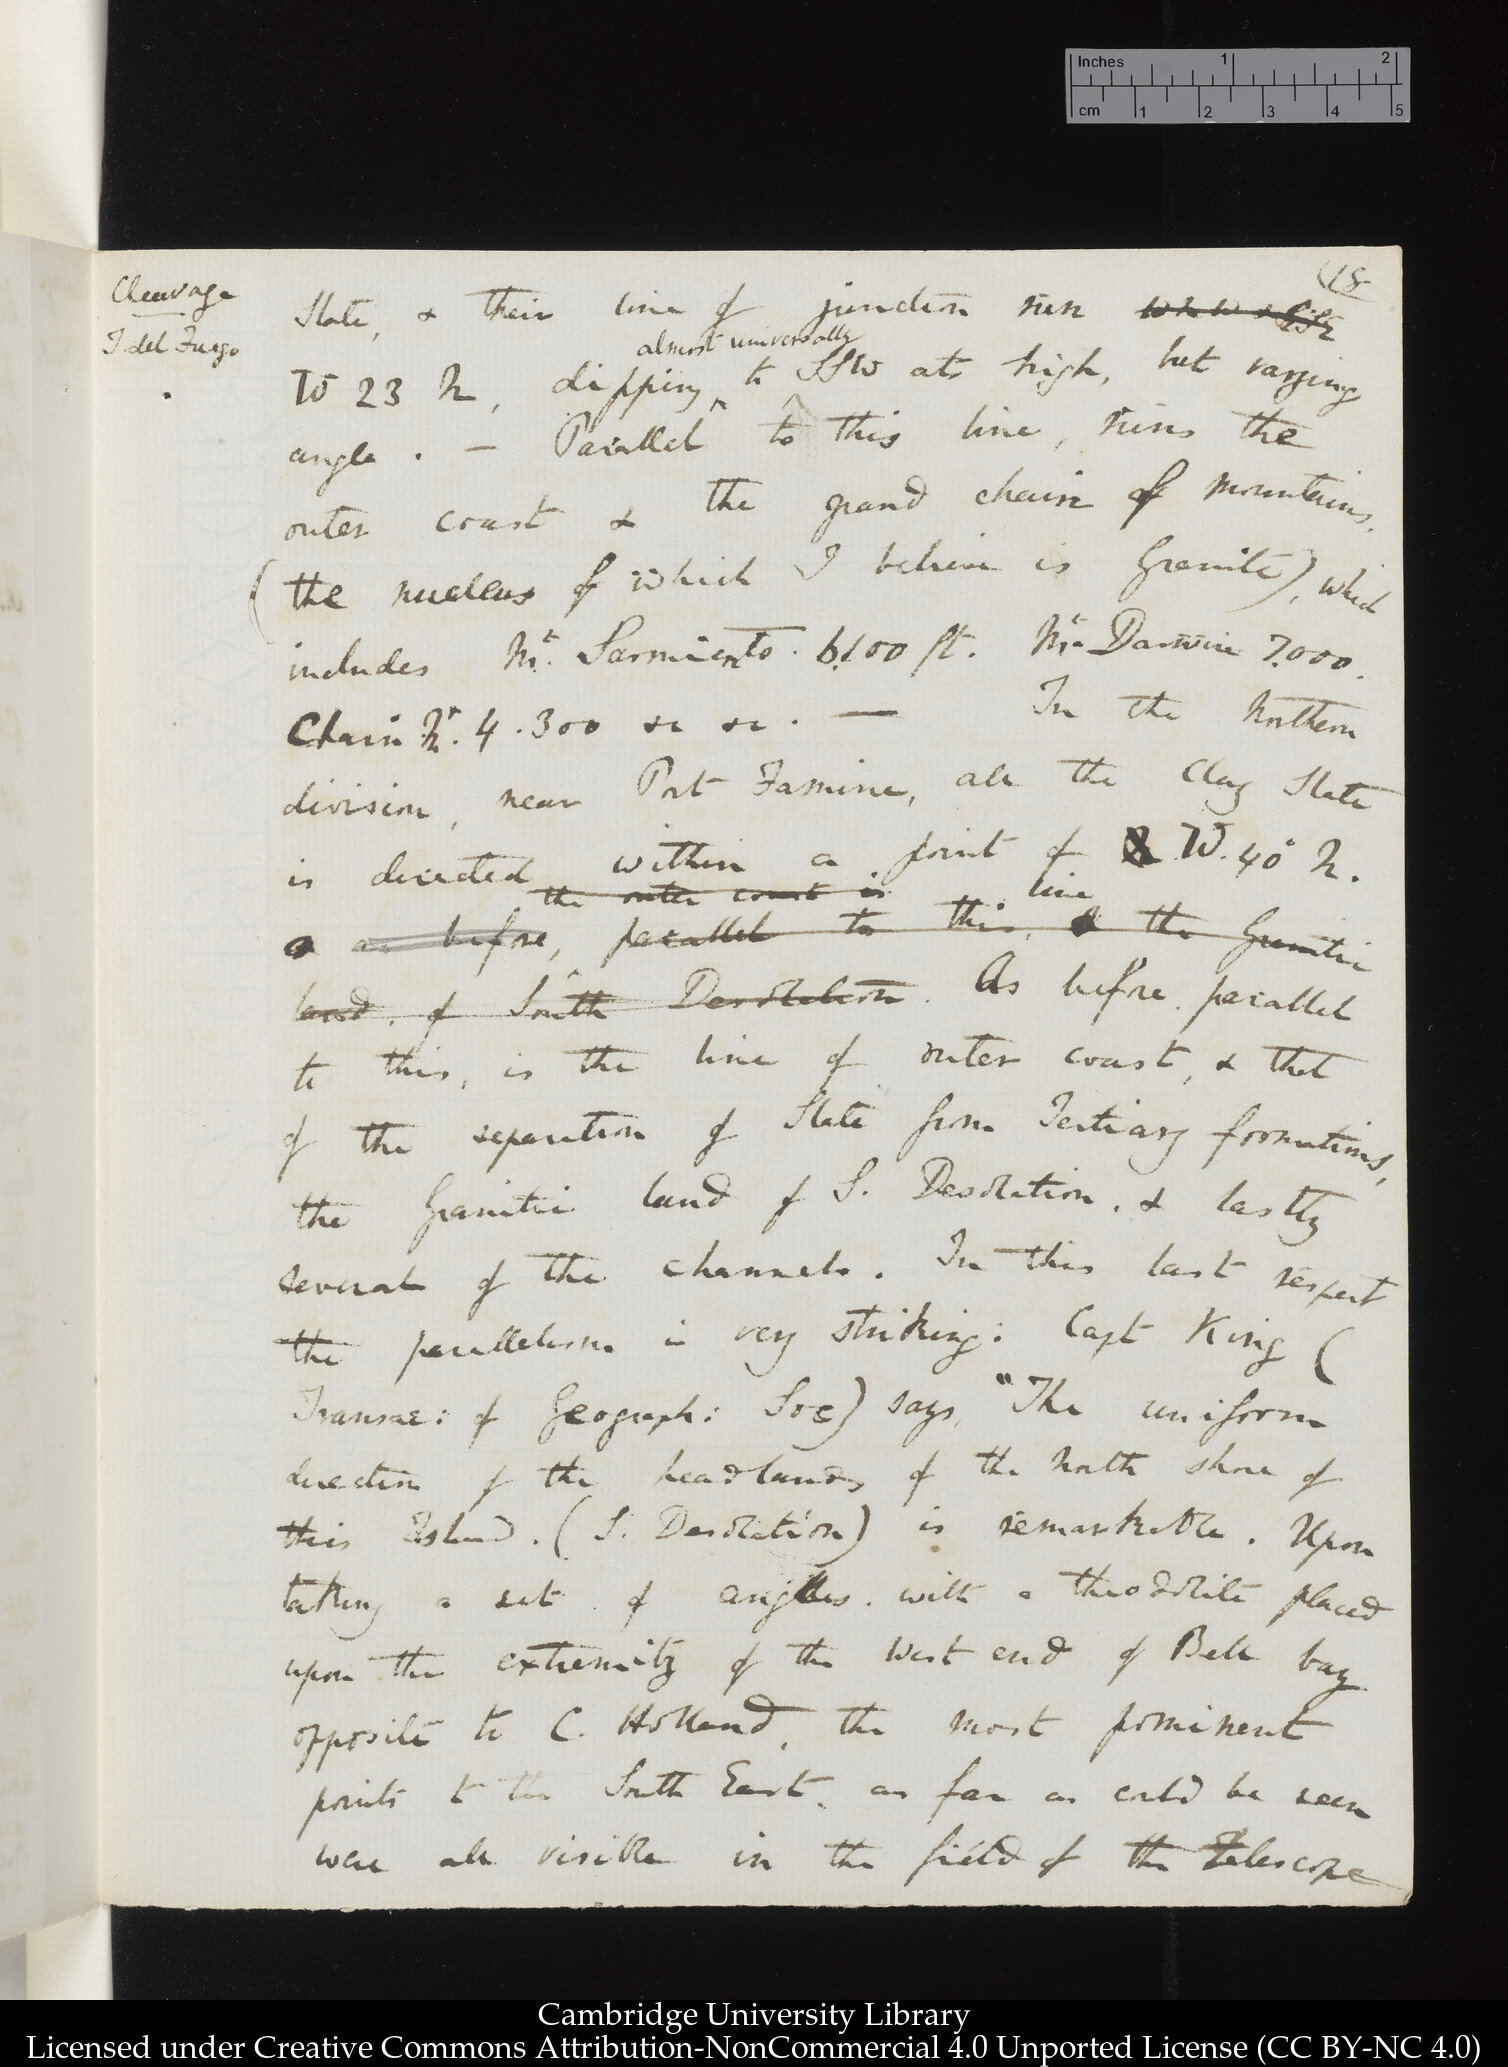 Inches 1 2
cm 1 2 3 4 5
(15
Cleavage
T del Fuego
Slate, & their line of junction run
almost universally
W 23 N, dipping to SSW at high, but varying
angle. — Parallel to this line, runs the
outer coast & the grand chain of mountains.
(the nucleus of which I believe is Granite), which
includes Mt. Sarmiento. 6100 ft. Mt. Darwin 7.000.
Chain Nr. 4.300 &c &c. — In the Northern
division, near Port Famine, all the Clay Slate
is directed within a point of W. 40° N.
the outer coast is line
as before, parallel to this, & the Granitic
land. of South Desolation. As before. parallel
to this, is the line of outer coast, & that
of the separation of Slate from Tertiary formations,
the Granitic land of S. Desolation. & lastly
several of the channels. In this last respect
the parallelism is very striking: Capt King (
Transac: of Geograph: Soc) says, "The uniform
direction of the headlands of the North shore of
this Island. (S. Desolation) is remarkable. Upon
taking a set of angles. with a theodolite placed
upon the extremity of the West end of Bell bay
opposite to C. Holland, the most prominent
points to the South East. as far as could be seen
were all visible in the field of the Telescope
Cambridge University Library
Licensed under Creative Commons Attribution-NonCommercial 4.0 Unported License (CC BY-NC 4.0)